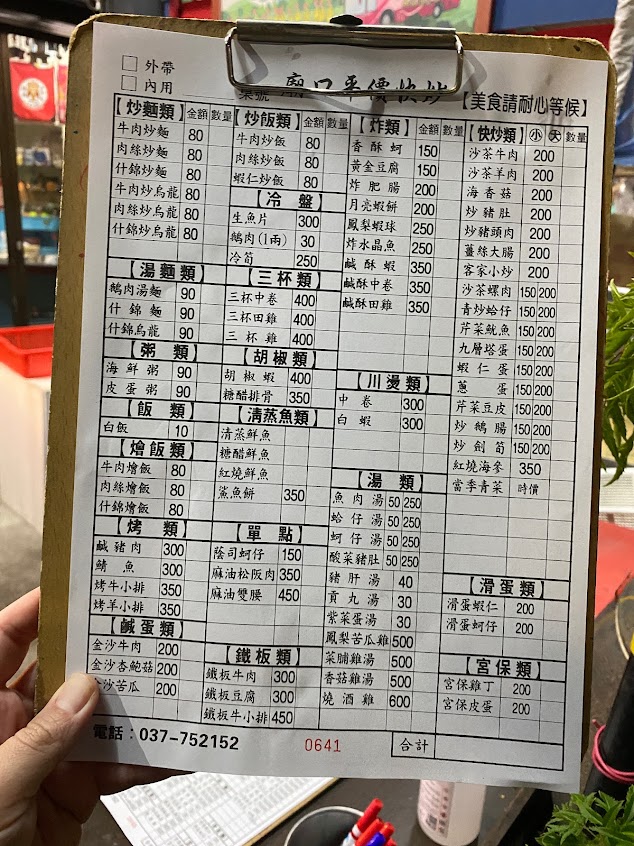 外帶
內用
廟口平價快炒
【美食請耐心等候】
【炒麵類】 金額 數量
牛肉炒麵 80
肉絲炒麵 80
什錦炒麵 80
牛肉炒烏龍 80
肉絲炒烏龍 80
什錦炒烏龍 80
【湯麵類】
鵝肉湯麵 90
什錦麵 90
什錦烏龍 90
【粥類】
海鮮粥 90
皮蛋粥 90
【飯類】
白飯 10
【燴飯類】
牛肉燴飯 80
肉絲燴飯 80
什錦燴飯 80
【烤類】
鹹豬肉 300
鯖魚 300
烤牛小排 350
烤羊小排 350
【鹹蛋類】
金沙牛肉 200
金沙杏鮑菇 200
金沙苦瓜 200
【炒飯類】 金額 數量
牛肉炒飯 80
肉絲炒飯 80
蝦仁炒飯 80
【冷盤】
生魚片 300
鵝肉(1兩) 30
冷筍 250
【三杯類】
三杯中卷 400
三杯田雞 400
三杯雞 400
【胡椒類】
胡椒蝦 400
糖醋排骨 350
【清蒸魚類】
清蒸鮮魚
糖醋鮮魚
紅燒鮮魚
鯊魚餅 350
【單點】
蔭司蚵仔 150
麻油松阪肉 350
麻油雙腰 450
【鐵板類】
鐵板牛肉 300
鐵板豆腐 300
鐵板牛小排 450
【炸類】 金額 數量
香酥蚵 150
黃金豆腐 150
炸肥腸 200
月亮蝦餅 200
鳳梨蝦球 250
炸水晶魚 250
鹹酥蝦 350
鹹酥中卷 350
鹹酥田雞 350
【川燙類】
中卷 300
白蝦 300
【湯類】
魚肉湯 50 250
蛤仔湯 50 250
蚵仔湯 50 250
酸菜豬肚 50 250
豬肝湯 40
貢丸湯 30
紫菜蛋湯 30
鳳梨苦瓜雞 500
菜脯雞湯 500
香菇雞湯 500
燒酒雞 600
【快炒類】 小 大 數量
沙茶牛肉 200
沙茶羊肉 200
海香菇 200
炒豬肚 200
炒豬頭肉 200
薑絲大腸 200
客家小炒 200
沙茶螺肉 150 200
青炒蛤仔 150 200
芹菜魷魚 150 200
九層塔蛋 150 200
蝦仁蛋 150 200
蔥蛋 150 200
芹菜豆皮 150 200
炒鵝腸 150 200
炒劍筍 150 200
紅燒海參 350
當季青菜 時價
【滑蛋類】
滑蛋蝦仁 200
滑蛋蚵仔 200
【宮保類】
宮保雞丁 200
宮保皮蛋 200
電話：037-752152
0641
合計